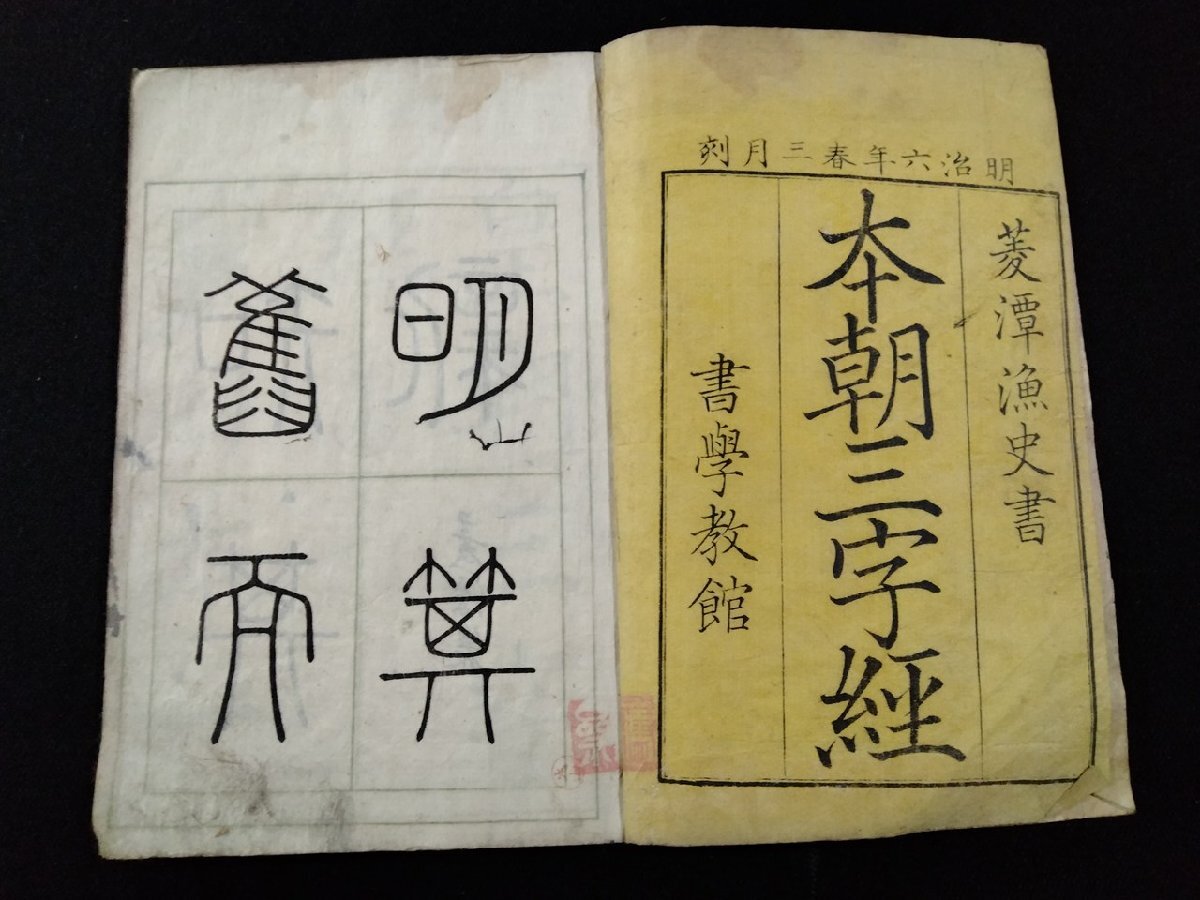 明治六年春三月刻
菱潭漁史書
本朝三字經
書學教館
明
舊